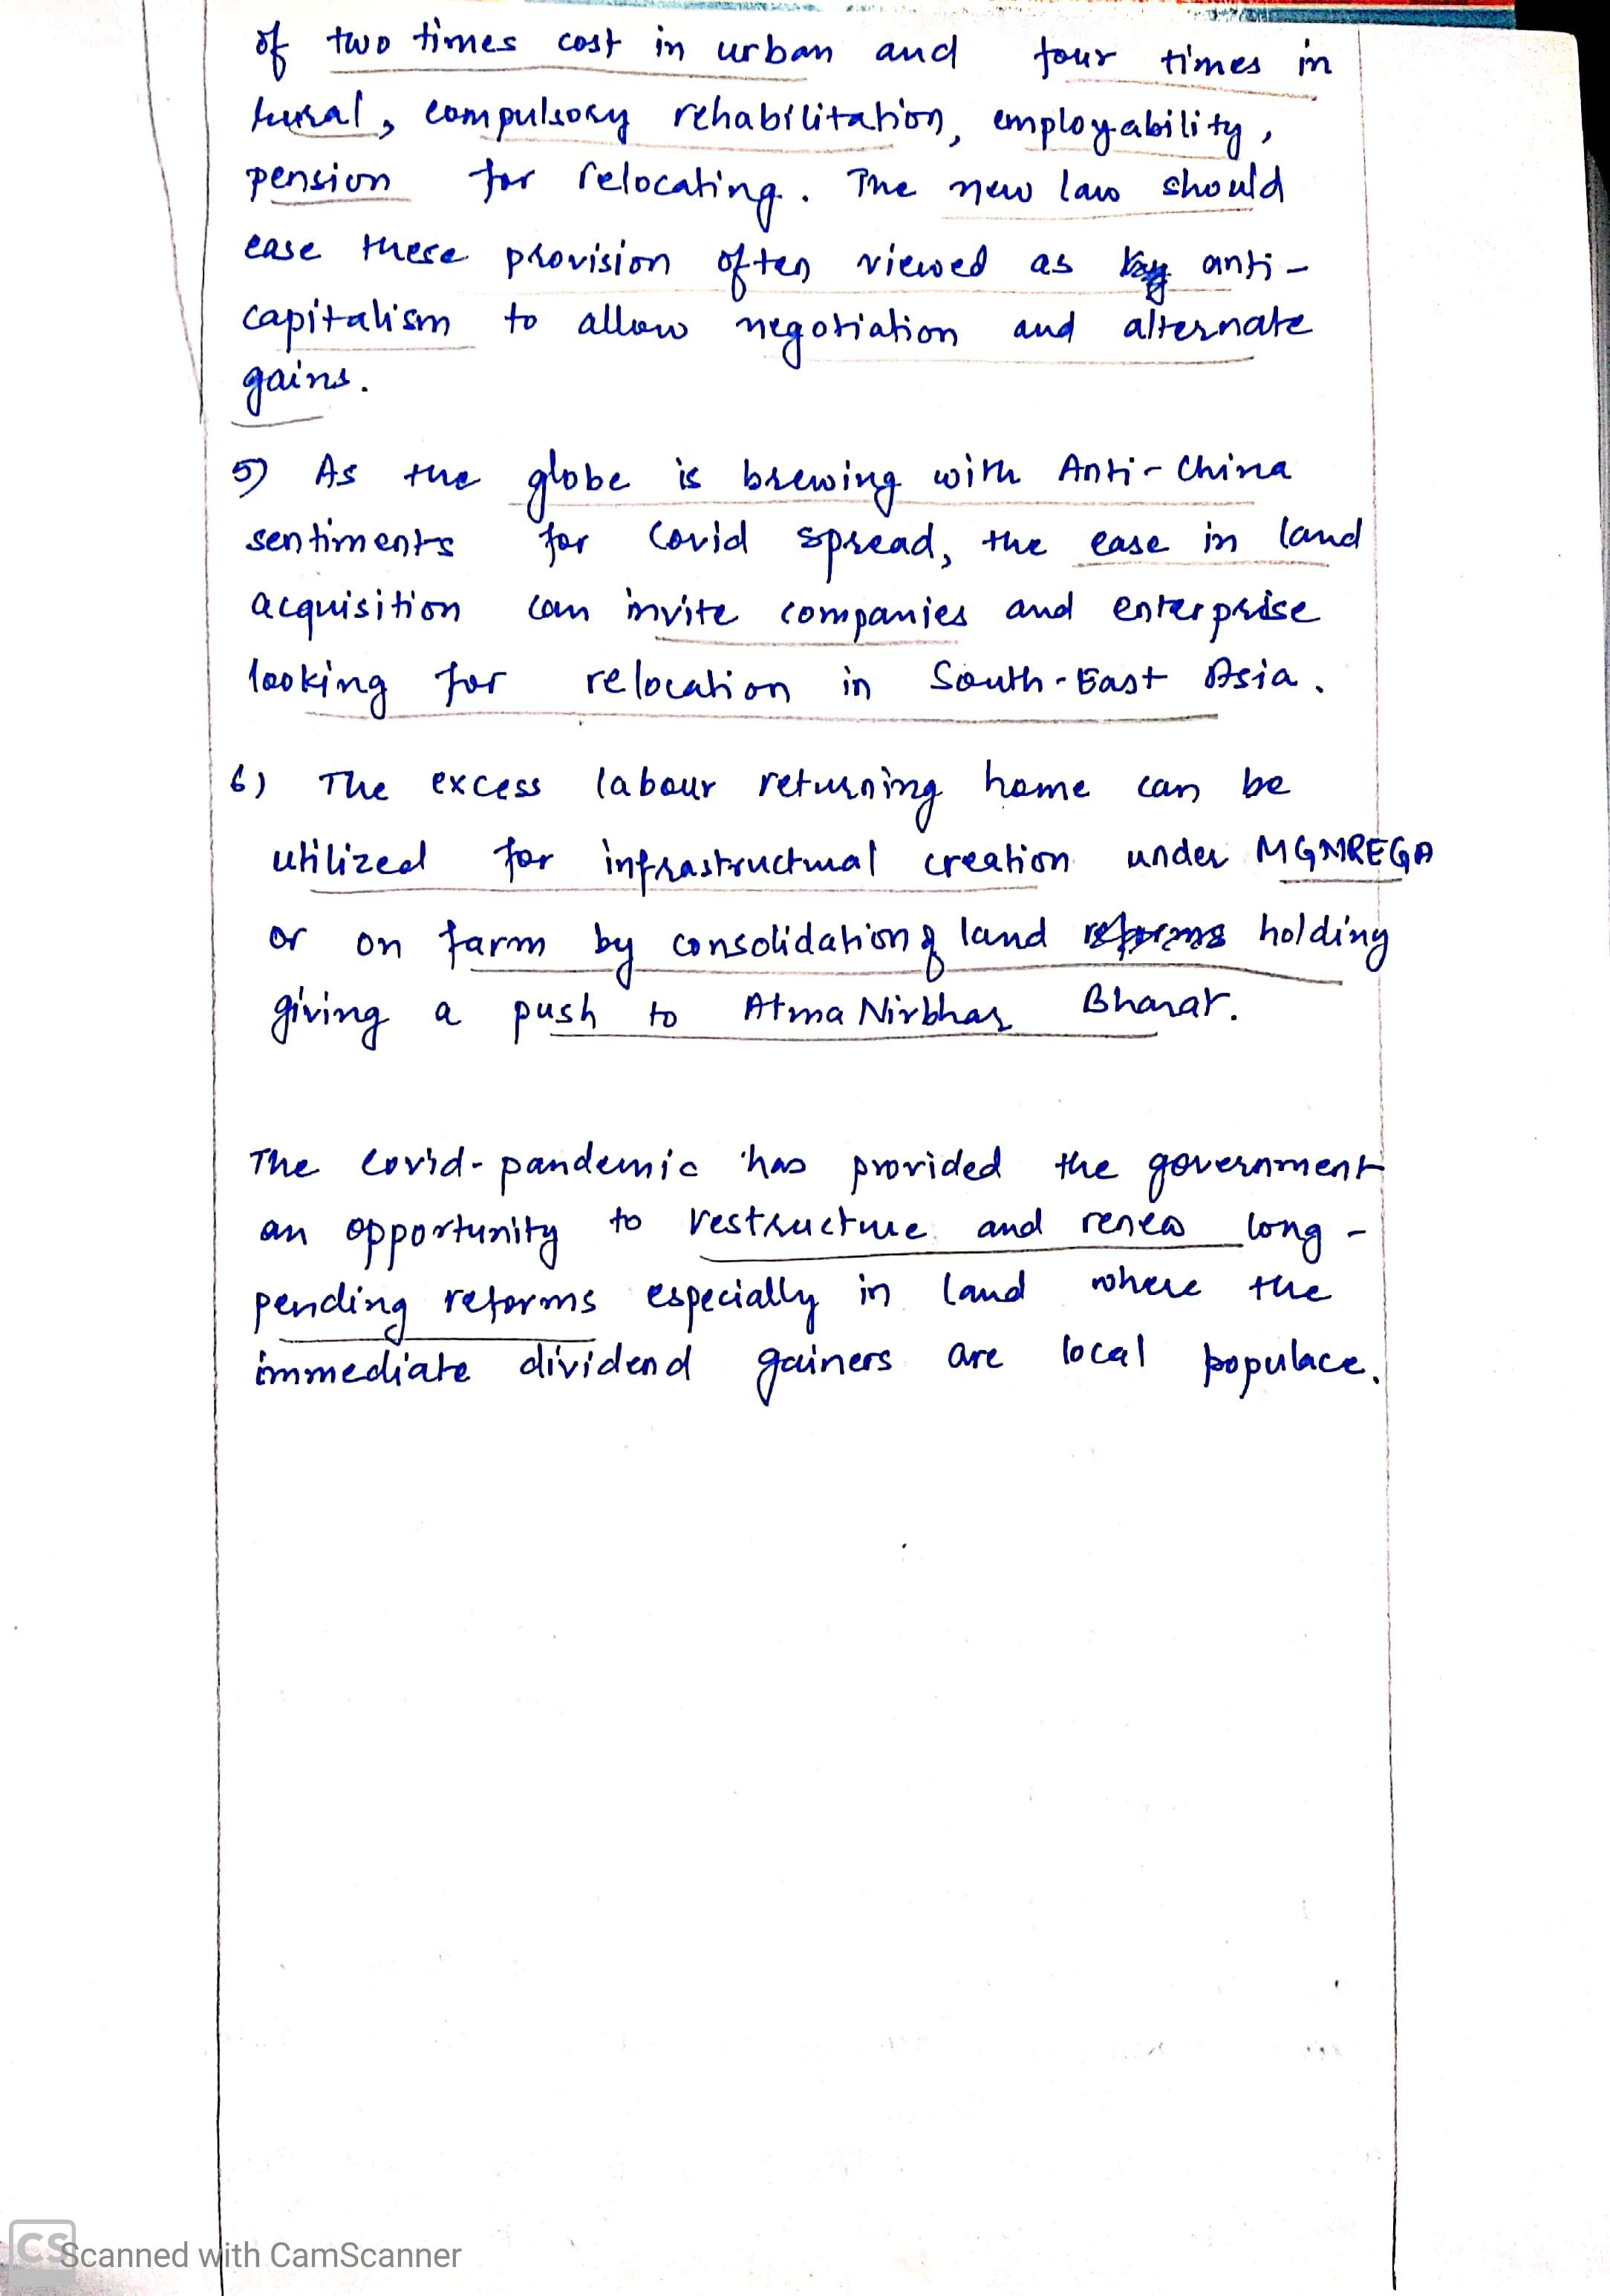 of two times cost in urban and four times in
rural, compulsory rehabilitation, employability,
pension for relocating. The new law should
ease these provision often viewed as anti-
capitalism to allow negotiation and alternate
gains.
5) As the globe is brewing with Anti-China
sentiments for Covid spread, the ease in land
acquisition can invite companies and enterprise
looking for relocation in South-East Asia.
6) The excess labour returning home can be
utilized for infrastructural creation under MGNREGA
or on farm by consolidation of land reforms holding
giving a push to Atma Nirbhar Bharat.
The Covid-pandemic has provided the government
an opportunity to restructure and renew long-
pending reforms especially in land where the
immediate dividend gainers are local populace.
CS Scanned with CamScanner